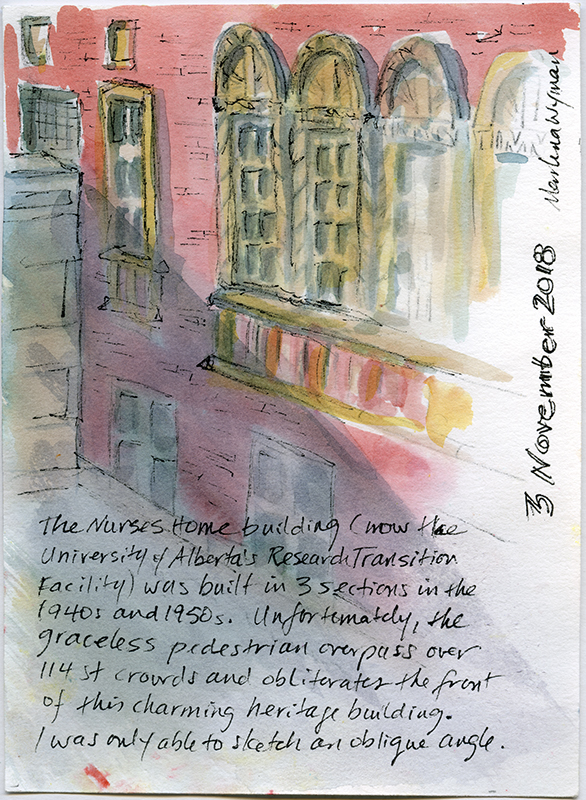 Marlena Wyman
3 November 2018
The Nurses Home building (now the
University of Alberta's Research Transition
Facility) was built in 3 sections in the
1940s and 1950s. Unfortunately, the
graceless pedestrian overpass over
114 st crowds and obliterates the front
of this charming heritage building.
I was only able to sketch an oblique angle.